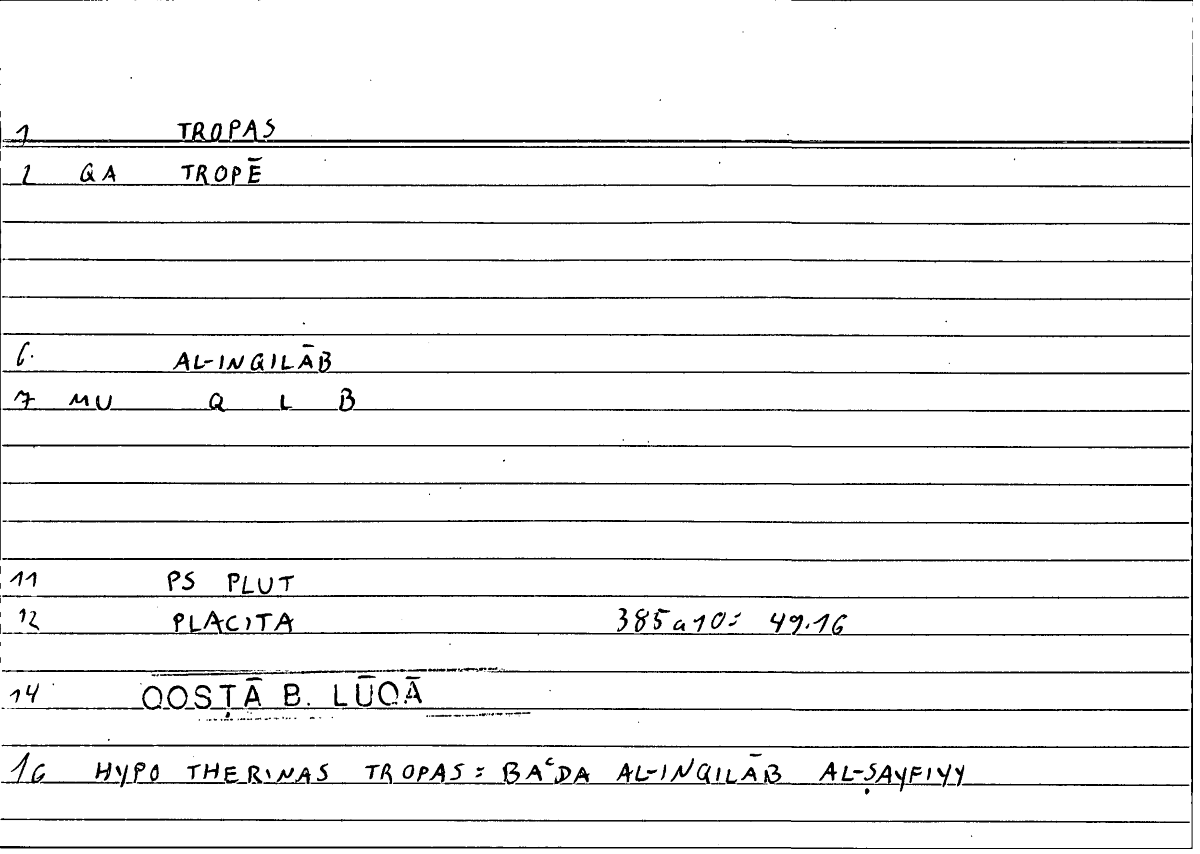 1 TROPAS
2 QA TROPĒ
6. AL-INQILĀB
7 MU Q L B
11 PS PLUT
12 PLACITA 385a10= 49.16
14 QOSṬĀ B. LŪQĀ
16 HYPO THERINAS TROPAS = BAʿDA AL-INQILĀB AL-ṢAYFIYY